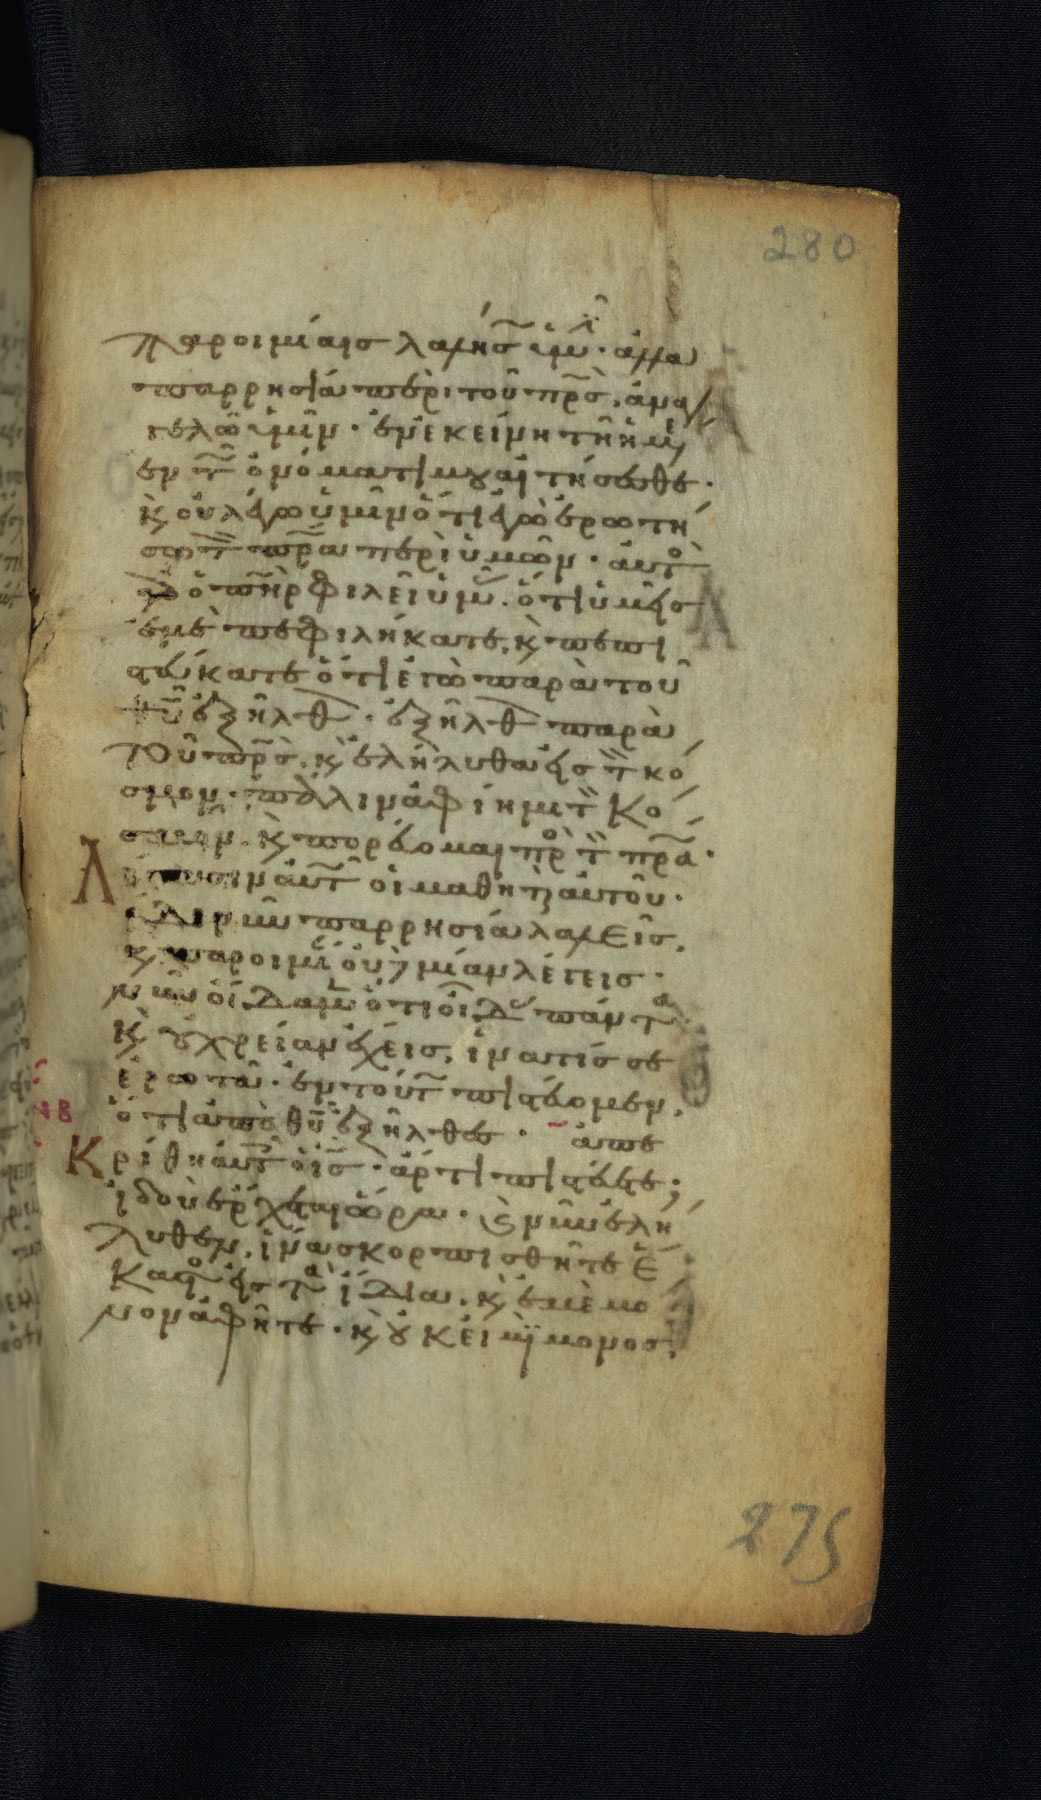 280
παροιμίαις λαλήσ ὑμῖν· ἀλλὰ
παρρησία περὶ τοῦ πρσ. ἀναγ
γελῶ ὑμῖν· ἐν ἐκείνη τῆ ἡμέ
ἐν τ ὀνόματι μου αἰτήσεσθε·
κ οὐ λέγω ὑμῖν ὅτι ἐγὼ ἐρωτή
σω τ πρα περὶ ὑμῶν· αὐτο
γὰρ ὁ πηρ φιλεῖ ὑμ. ὅτι ὑμεῖσ
ἐμὲ πεφιλήκατε, κ πεπι
στεύκατε ὅτι ἐγὼ παρὰ τοῦ
θυ ἐξῆλθ· ἐξῆλθ παρὰ
τοῦ πρσ. κ ἐλήλυθα εἰσ τ κό
σμον· πάλιν ἀφίημι τ κό
σμον. κ πορεύομαι πρ τ πρα·
Λέγουσιν αὐτ οἱ μαθητ αὐτοῦ·
ἴδε νῦν παρρησία λαλεῖσ.
κ παροιμί οὐδεμίαν λέγεισ·
νῦν οἴδαμ ὅτι οἶδ πάντα·
κ οὐ χρείαν ἔχεισ. ἵνα τίσ σε
ἐρωτᾶ· ἐν τούτ πιστεύομεν,
ὅτι ἀπὸ θυ ἐξῆλθεσ· ἀπε
Κρίθη αὐτ ὁ ισ· ἄρτι πιστεύετε;
ἰδοὺ ἔρχεται ὥρα· κ νῦν ἐλή
λυθεν, ἵνα σκορπισθῆτε ἕ
καστο εἰσ τα ἴδια. κ ἐμὲ μο
νον ἀφῆτε· κ οὐκ εἰμὶ μονοσ.
275